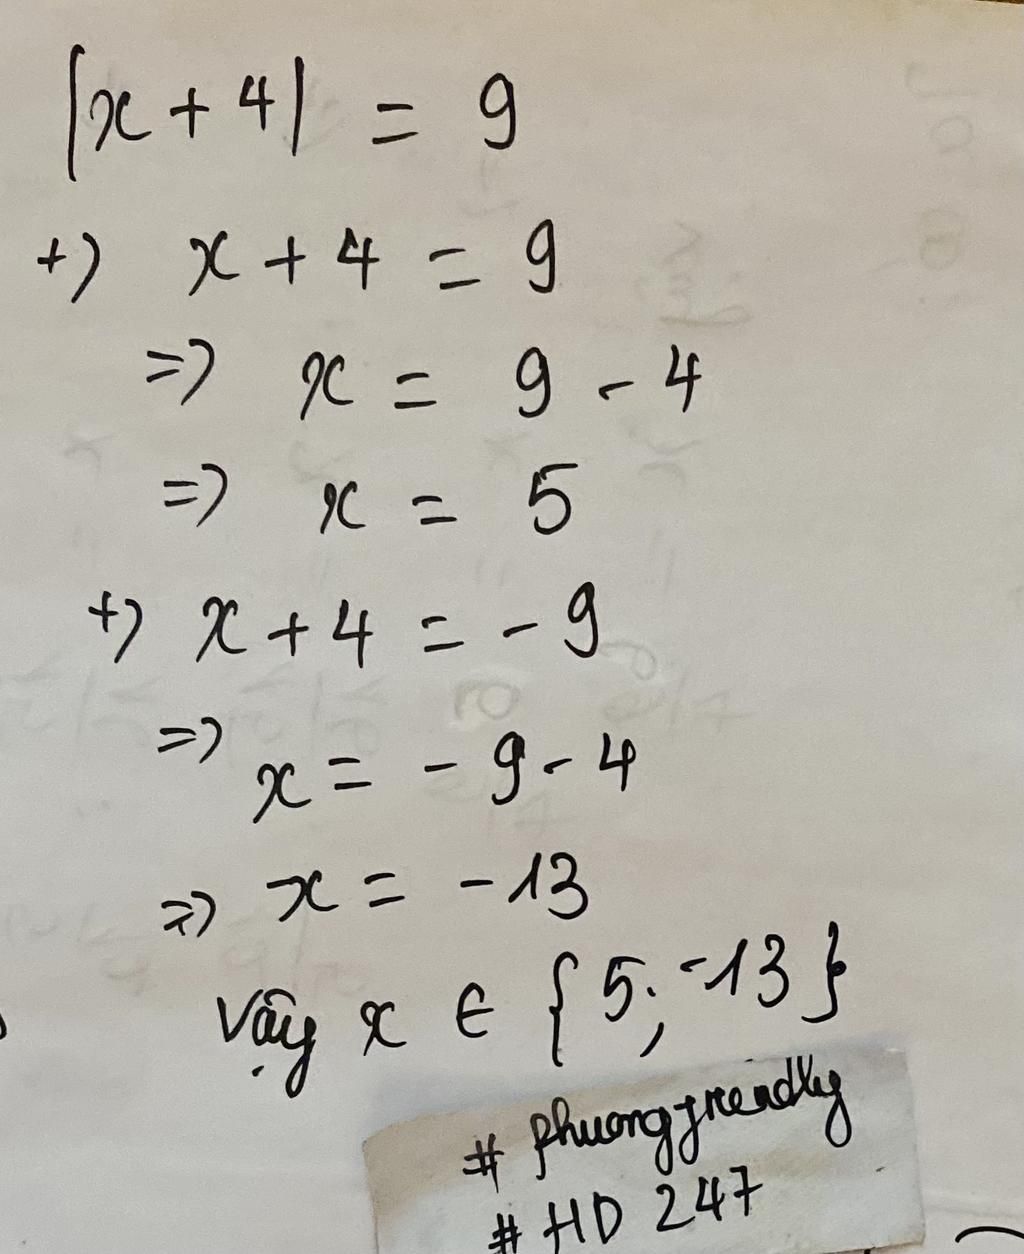 |x + 4| = 9
+) x + 4 = 9
=> x = 9 - 4
=> x = 5
+) x + 4 = - 9
=> x = - 9 - 4
=> x = - 13
Vậy x ∈ {5; -13}
# phuongfriendly
# HD 247